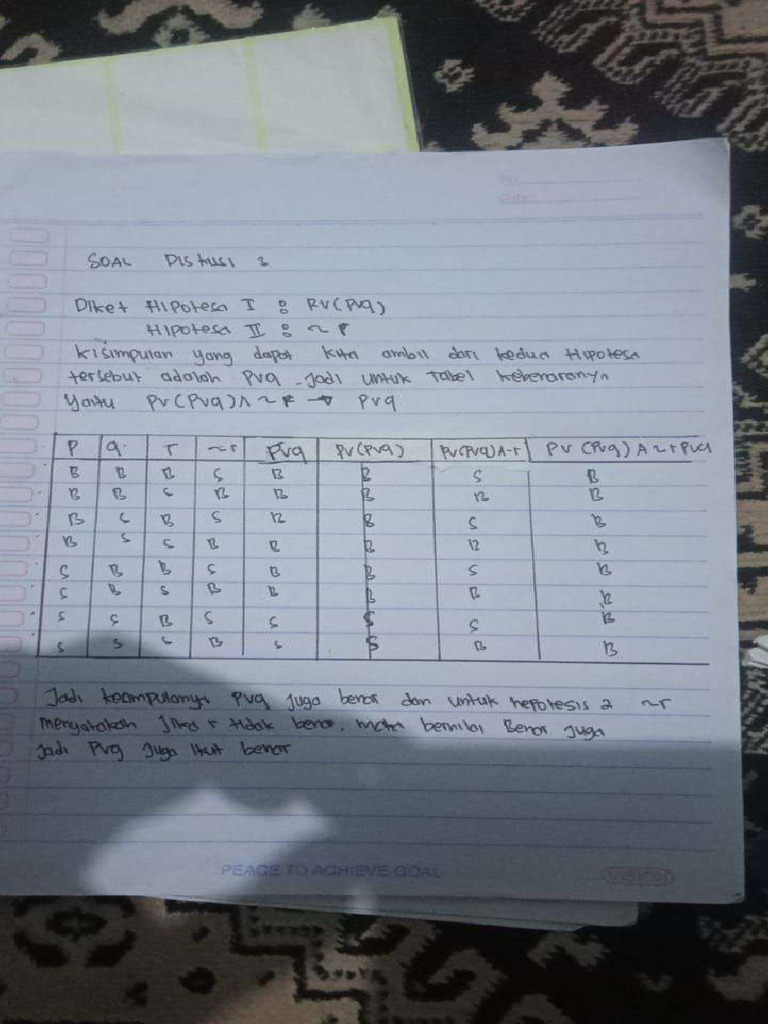 SOAL DISKUSI 3
Diket Hipotesa I : RV(PVq)
Hipotesa II : ~ r
Kisimpulan yang dapat kita ambil dari kedua Hipotesa
tersebut adalah PVq. Jadi untuk Tabel kebenaranya
Yaitu PV(PVq)Λ ~ r → PVq
P q r ~r PVq PV(PVq) PV(PVq)Λ~r PV (PVq) Λ ~r PVq
B B B S B B S B
B B S B B B B B
B S B S B B S B
B S S B B B B B
S B B S B B S B
S B S B B B B B
S S B S S S S B
S S S B S S B B
Jadi kesimpulannya PVq Juga benar dan untuk hepotesis 2 ~r
menyatakan Jika r tidak benar. maka bernilai Benar Juga
Jadi PVq Juga ikut benar
PEACE TO ACHIEVE GOAL
VISION